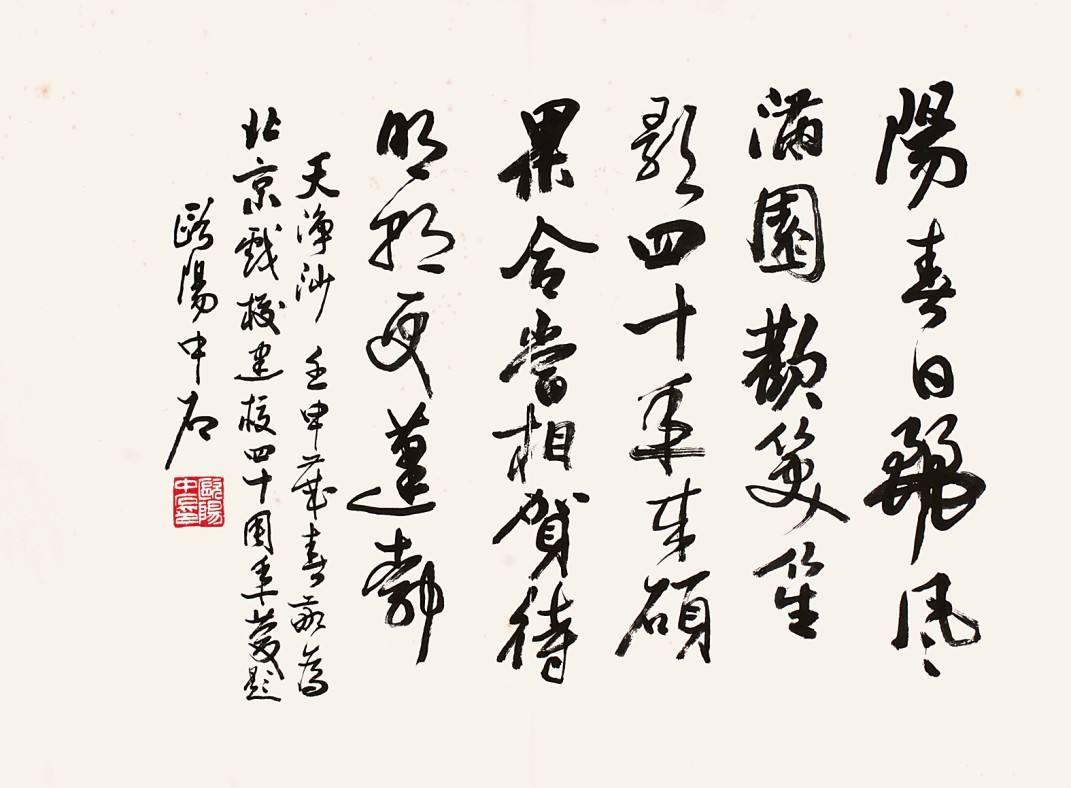 陽春日麗風
滿園歡笑笙
歌四十年來碩
果合當相賀待
明朝更蓬勃
天淨沙 壬申歲春敬為
北京戲校建校四十周年慶題
歐陽中石
歐陽
中